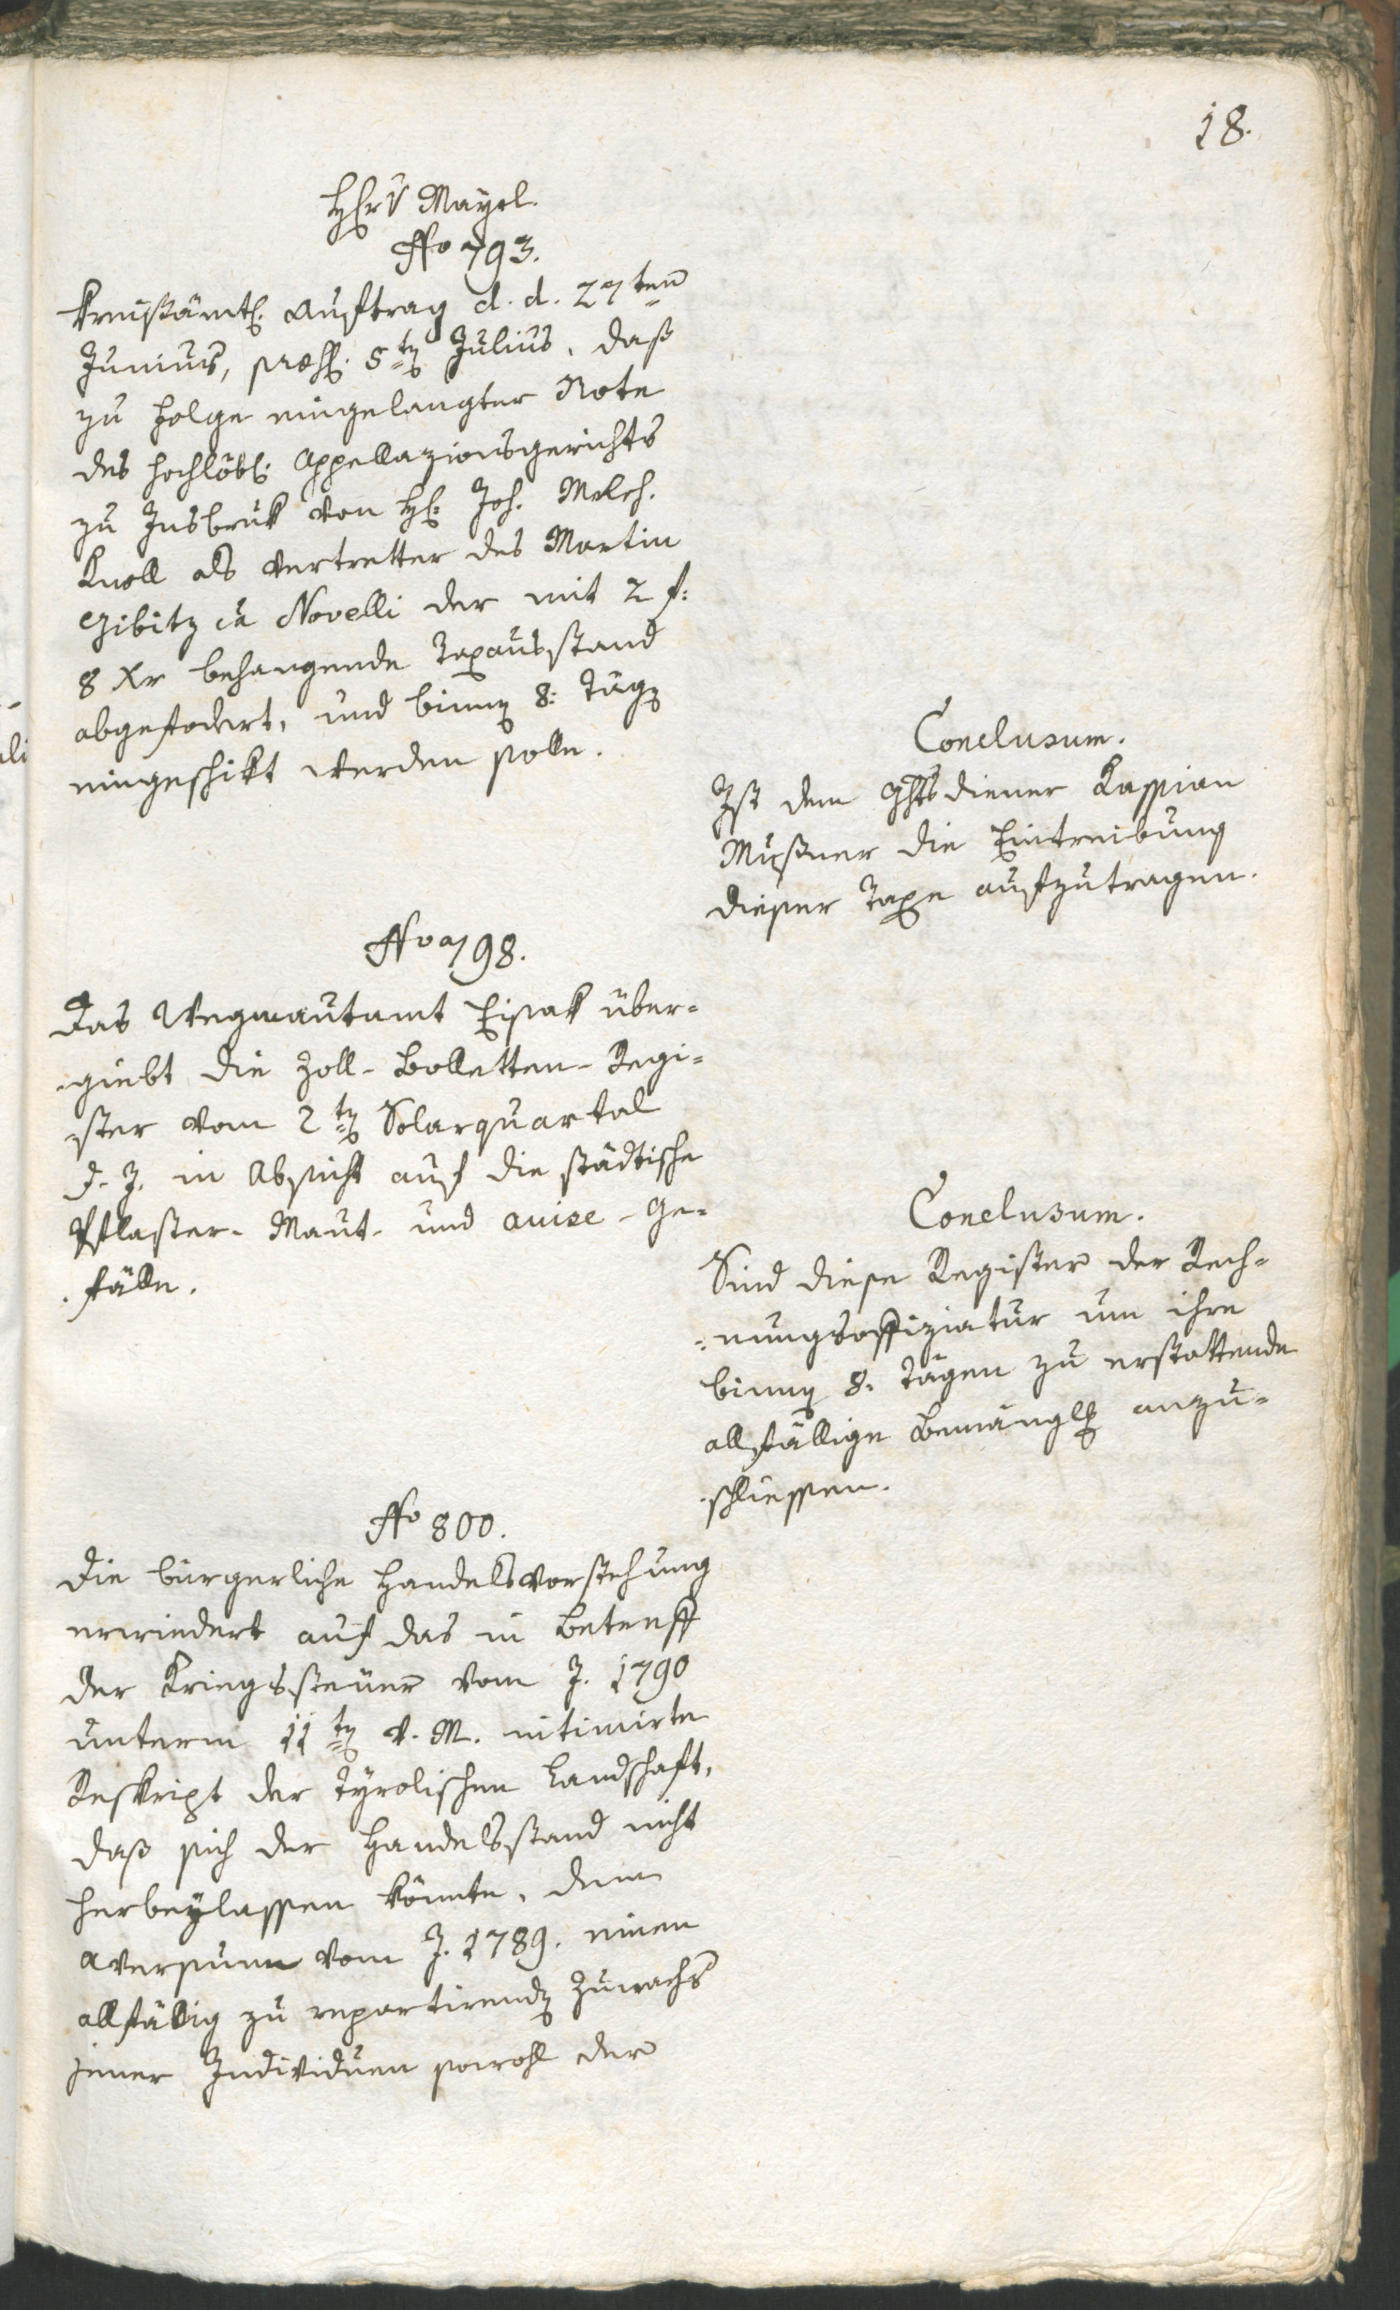 18.
Hℓr v Mayrl.
No 793.
Kreisämtl. Auftrag d. d. 27ten
Junius, præs. 5tn Julius, daß
zu Folge eingelangter Note
des hochlöbl. Appellazionsgerichts
zu Insbruk von H: Joh. Melch.
Knoll als Vertretter des Martin
Gibitz ca Novelli der mit 2 f:
8 Xr behangende Taxausstand
abgefodert, und binnen 8: Tägen
eingeschikt werden solle.
Conclusum.
Ist dem Ghtsdiener Kassian
Mußner die Eintreibung
dieser Taxe aufzutragen.
No 798.
Das Wegmautamt Eisak über-
giebt die Zoll-Bolletten-Regi-
ster vom 2tn Solarquartal
d. J. in Absicht auf die städtische
Pflaster-Maut- und avise-Ge-
fälle.
Conclusum.
Sind diese Register der Rech-
nungsoffiziatur um ihre
binnen 8. Tägen zu erstattende
allfällige Bemänglg anzu-
schliessen.
No 800.
Die bürgerliche Handelsvorstehung
erwiedert auf das in Betreff
der Kriegssteuer vom J. 1790
unterm 11tn v. M. intimirte
Reskript der Tyrolischen Landschaft,
daß sich der Handelsstand nicht
herbeylassen könnte, dem
Aversum vom J. 1789. einen
allfällig zu repartirenden Zuwachs
jener Individuen sowohl der